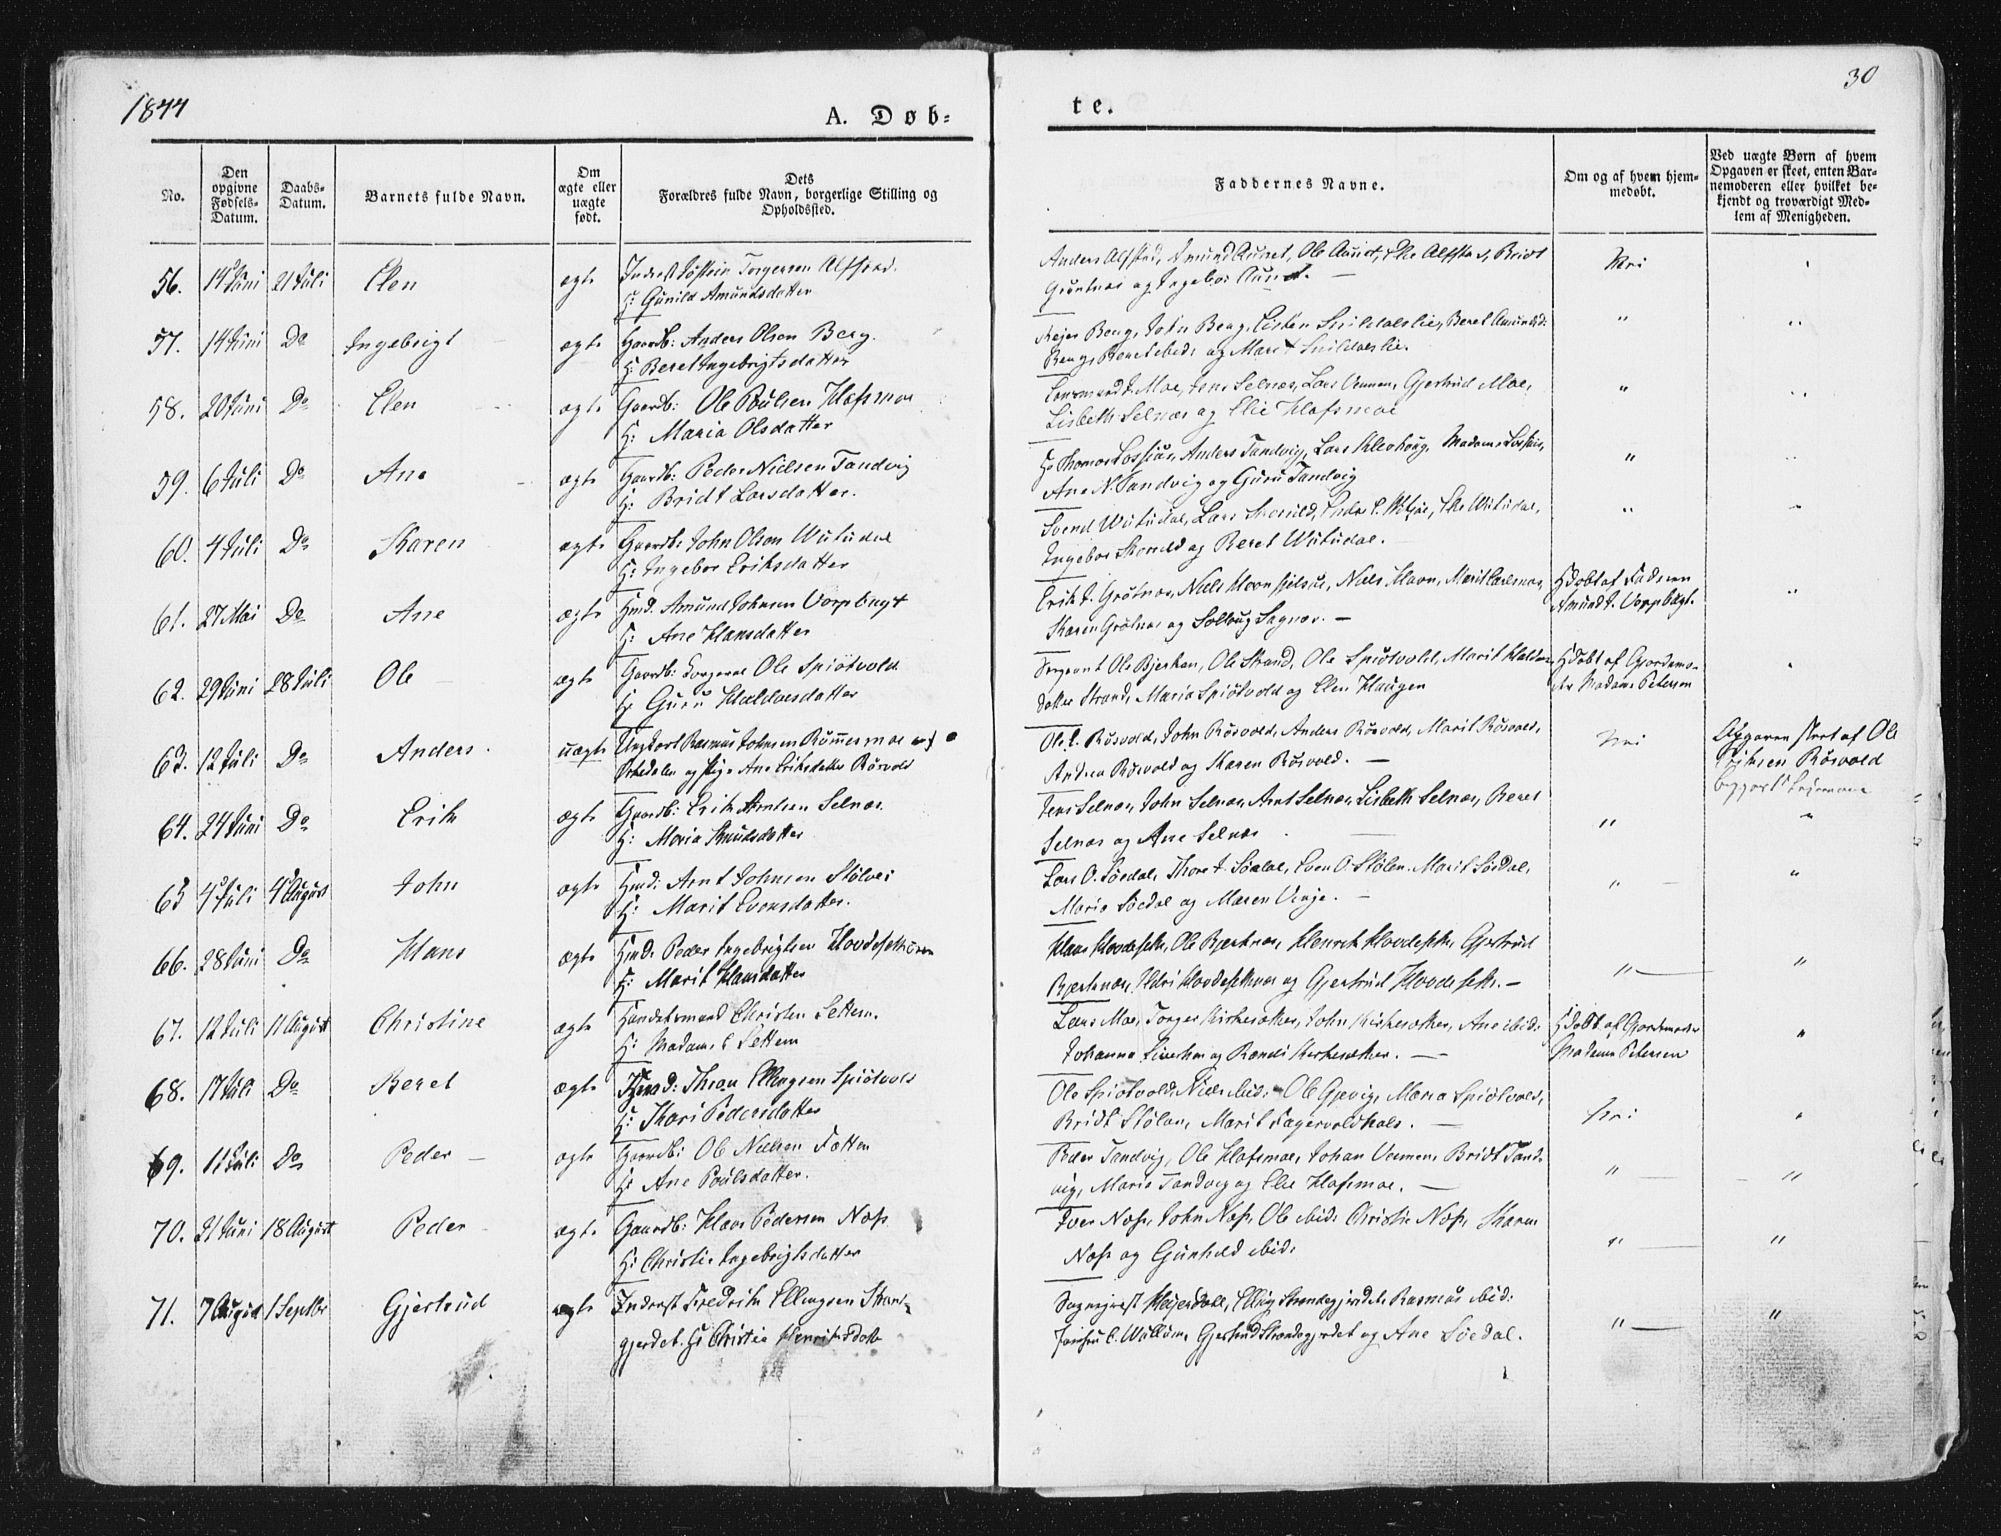 1844
30
A. Døb-
te.
No.
Den opgivne Fødsels-Datum.
Daabs-Datum.
Barnets fulde Navn.
Om ægte eller uægte født.
Dets Forældres fulde Navn, borgerlige Stilling og Opholdssted.
Faddernes Navne.
Om og af hvem hjem-medøbt.
Ved uægte Børn af hvem Opgaven er skeet, enten Bar-nemoderen eller hvilket be-kjendt og troværdigt Med-lem af Menigheden.
56. 14 Juni 21 Juli Elen ægte Inderst Torgersen Alfstad.
H: Gunild Amundsdatter
Anders Alfstad, Amund Aunet, Ole Aunet, Alfstad, Bridt
Grøtnæs og Ingebor Aunet. Nei
57. 14 Juni Do Ingebrigt ægte Gaardb: Anders Olsen Berg.
H: Beret Ingebrigtsdatter
Berg, John Berg, Snildalslie, Beret Amundsd:
Berg, og Marit Snildalslie. "
58. 20 Juni Do Elen ægte Gaardb: Ole Poulsen Hafsmoe
H: Maria Olsdatter
Moe, Jens Selnæs, Lars Vennen, Gjertrud Moe,
Lisbeth Selnæs og Elie Hafsmoe "
59. 6 Juli Do Ane ægte Gaardb: Peder Nielsen Tandvig
H: Bridt Larsdatter.
Hr Thomas Lossius, Anders Tandvig, Lars Madame Lossius,
Ane N. Tandvig og Guru Tandvig "
60. 4 Juli Do Karen ægte Gaardb: John Olsen Wutudal
H: Ingebor Eriksdatter
Svend Wutudal, Lars Wutudal,
Ingebor og Beret Wutudal. "
61. 27 Mai Do Ane ægte Hmd. Amund Johnsen Vorpbugt
H: Ane Hansdatter
Erik J. Grøtnæs, Niels Niels Havn, Marit
Karen Grøtnæs og Solloug Sagnæs.
Hdøbt af Faderen
Amund J. Vorpbugt.
62. 29 Juni 28 Juli Ole ægte Gaardb: Ole Spiøtvold
H: Guru Haldorsdatter
Sergeant Ole Bjerkan, Ole Strand, Ole Spiøtvold, Marit Haldors
datter Strand, Maria Spiøtvold og Elen Haugen
Hdøbt af Gjordemo-
der Madame Petersen
63. 12 Juli Do Anders uægte Ungkarl Rasmus Johnsen Rømmesmoe af
Orkedalen og Pige Ane Eriksdatter Røsvold
Ole E. Røsvold, John Røsvold, Anders Røsvold, Marit Røsvold,
Andrea Røsvold og Karen Røsvold. Nei
Opgaven skeet af Ole
Eriksen Røsvold
64. 24 Juni Do Erik ægte Gaardb: Erik Arntsen Selnæs
H: Maria Knudsdatter
Jens Selnæs, John Selnæs, Arnt Selnæs, Lisbeth Selnæs, Beret
Selnæs og Ane Selnæs "
65 4 Juli 4 August John ægte Hmd: Arnt Johnsen Stølen
H: Marit Evensdatter.
Lars O. Søedal, Thore J. Søedal, Even O. Stølen Marit Søedal,
Maria Søedal og Maren Vinje. "
66. 28 Juni Do Hans ægte Hmd. Peder Ingebrigtsen Hovdesetnæs
H: Marit Hansdatter
Hans Hovdeset, Ole Bjerknæs, Henrik Hovdeset, Gjertrud
Bjerknæs, Hovdesetnæs og Gjertrud Hovdeset. "
67. 12 Juli 11 August Christine ægte Handelsmand Christen Settem.
H: Madame C Settem
Lars Moe, Torger Kirkesæther, John Kirkesæther, Ane ibid:
Johanna og Randi Kirkesæther.
Hdøbt af Gjordemoder
Madame Petersen
68. 17 Juli Do Beret ægte Hmd: Thron Ellingsen Spiøtvold
H: Kari Pedersdatter
Ole Spiøtvold, Niels ibid: Ole Gjævig, Maria Spiøtvold,
Bridt Stølan, Marit Fagervoldhals. Nei
69. 11 Juli Do Peder ægte Gaardb: Ole Nielsen Fætten
H: Ane Poulsdatter.
Peder Tandvig, Ole Hafsmoe, Johan Vennen, Bridt Tand-
vig, Marie Tandvig og Elie Hafsmoe. "
70. 21 Juni 18 August Peder ægte Gaardb: Klaus Pedersen Næss
H: Christie Ingebrigtsdatter
Iver Næss, John Næss, Ole ibid: Christie Næss, Karen
Næss og Gunhild ibid: "
71. 7 August 1 Septbr Gjertrud ægte Inderst Fredrik Ellingsen Strand-
gjerdet. H: Christie Henriksdatt
Elling Strandegjerdet Rasmus ibid:
E. Wullum, Gjertrud Strandegjerdet og Ane Søedal. "